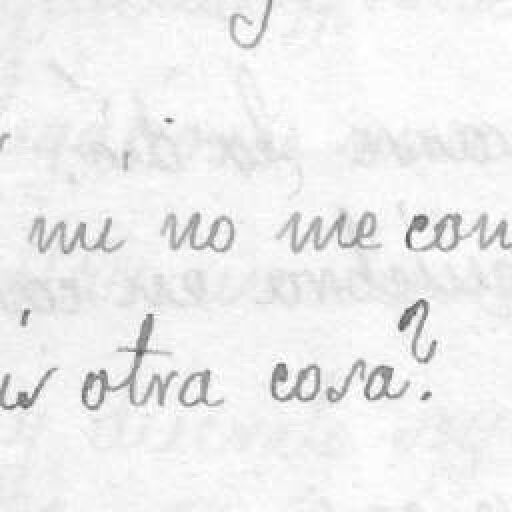 mi no me con
otra cosa?